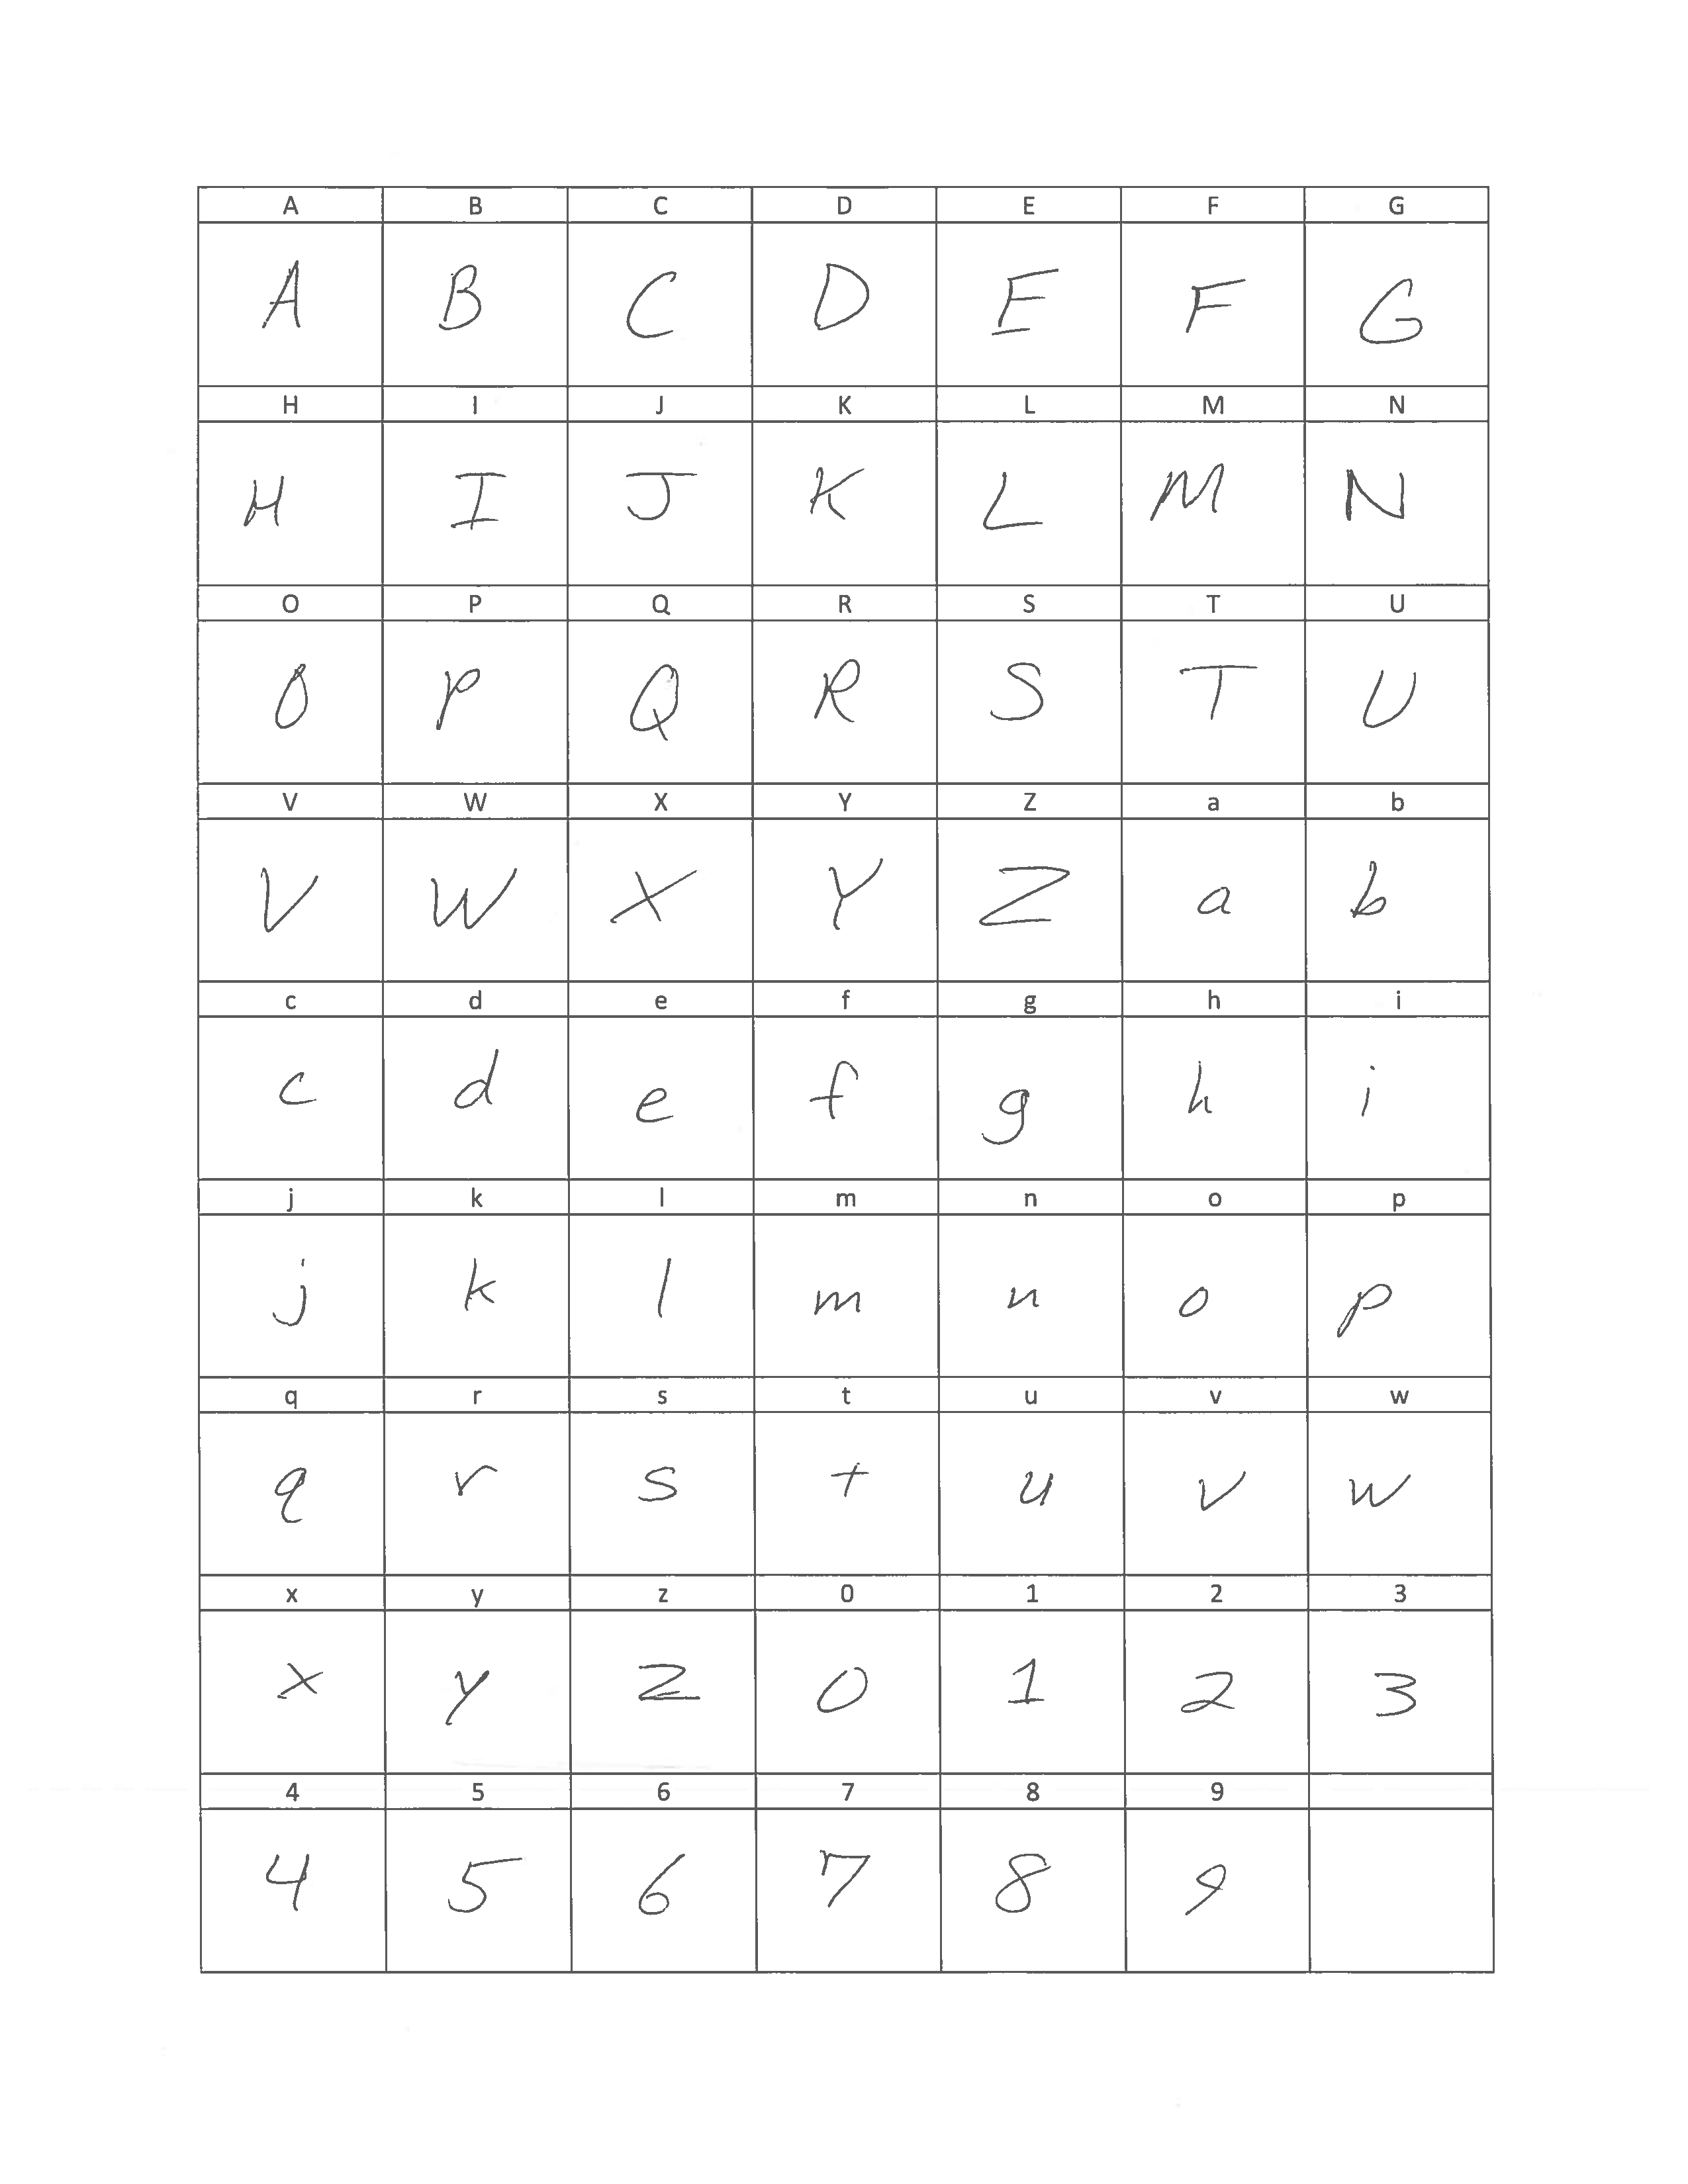 A B C D E F G
A B C D E F G
H I J K L M N
H I J K L M N
O P Q R S T U
O P Q R S T U
V W X Y Z a b
V W X Y Z a b
c d e f g h i
c d e f g h i
j k l m n o p
j k l m n o p
q r s t u v w
q r s t u v w
x y z 0 1 2 3
x y z 0 1 2 3
4 5 6 7 8 9
4 5 6 7 8 9